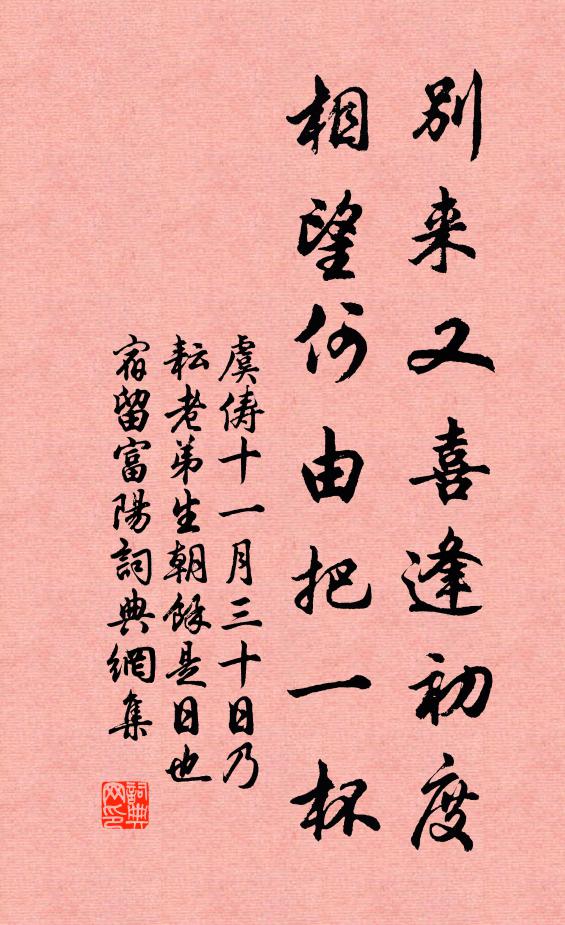 別来又喜逢初度
相望何由把一杯
虞儔十一月三十日乃
耘老弟生朝餘是日也
宿留富陽詞典網集
詞典网印